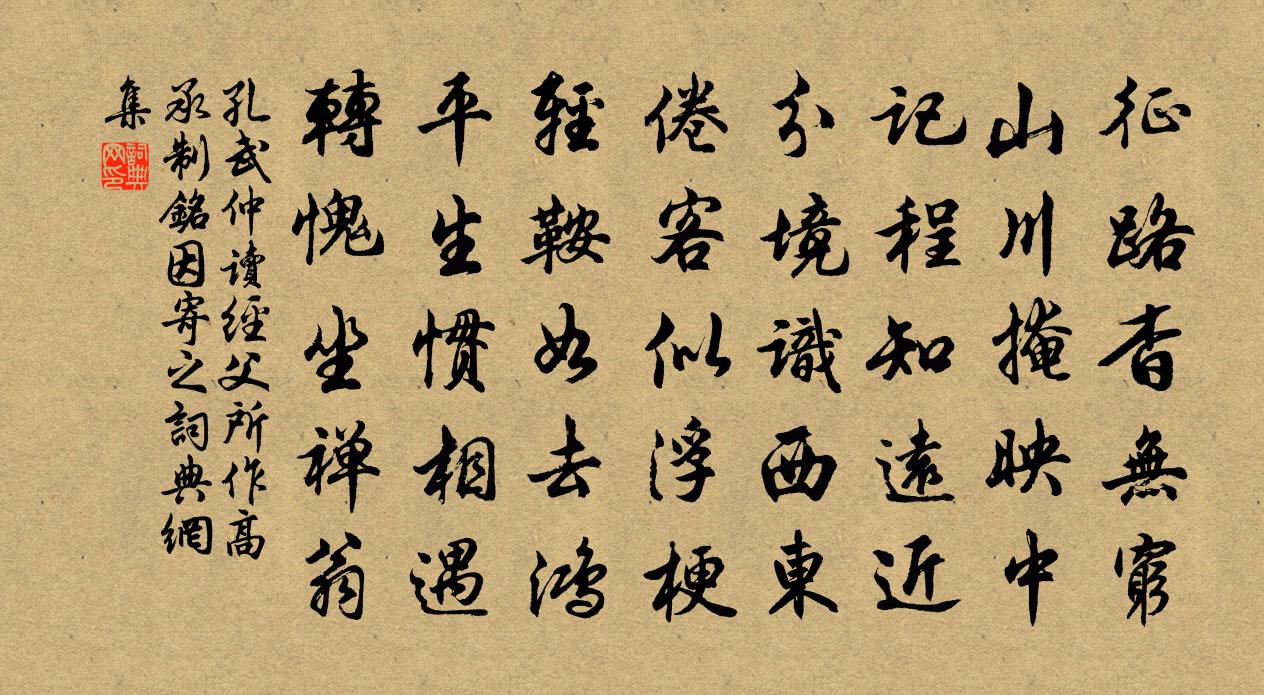 征路杳無窮
山川掩映中
記程知遠近
分境識西東
倦客似浮梗
輕鞍如去鴻
平生慣相遇
轉愧坐禅翁
孔武仲讀經父所作高
承制銘因寄之詞典網
集
詞典
网印